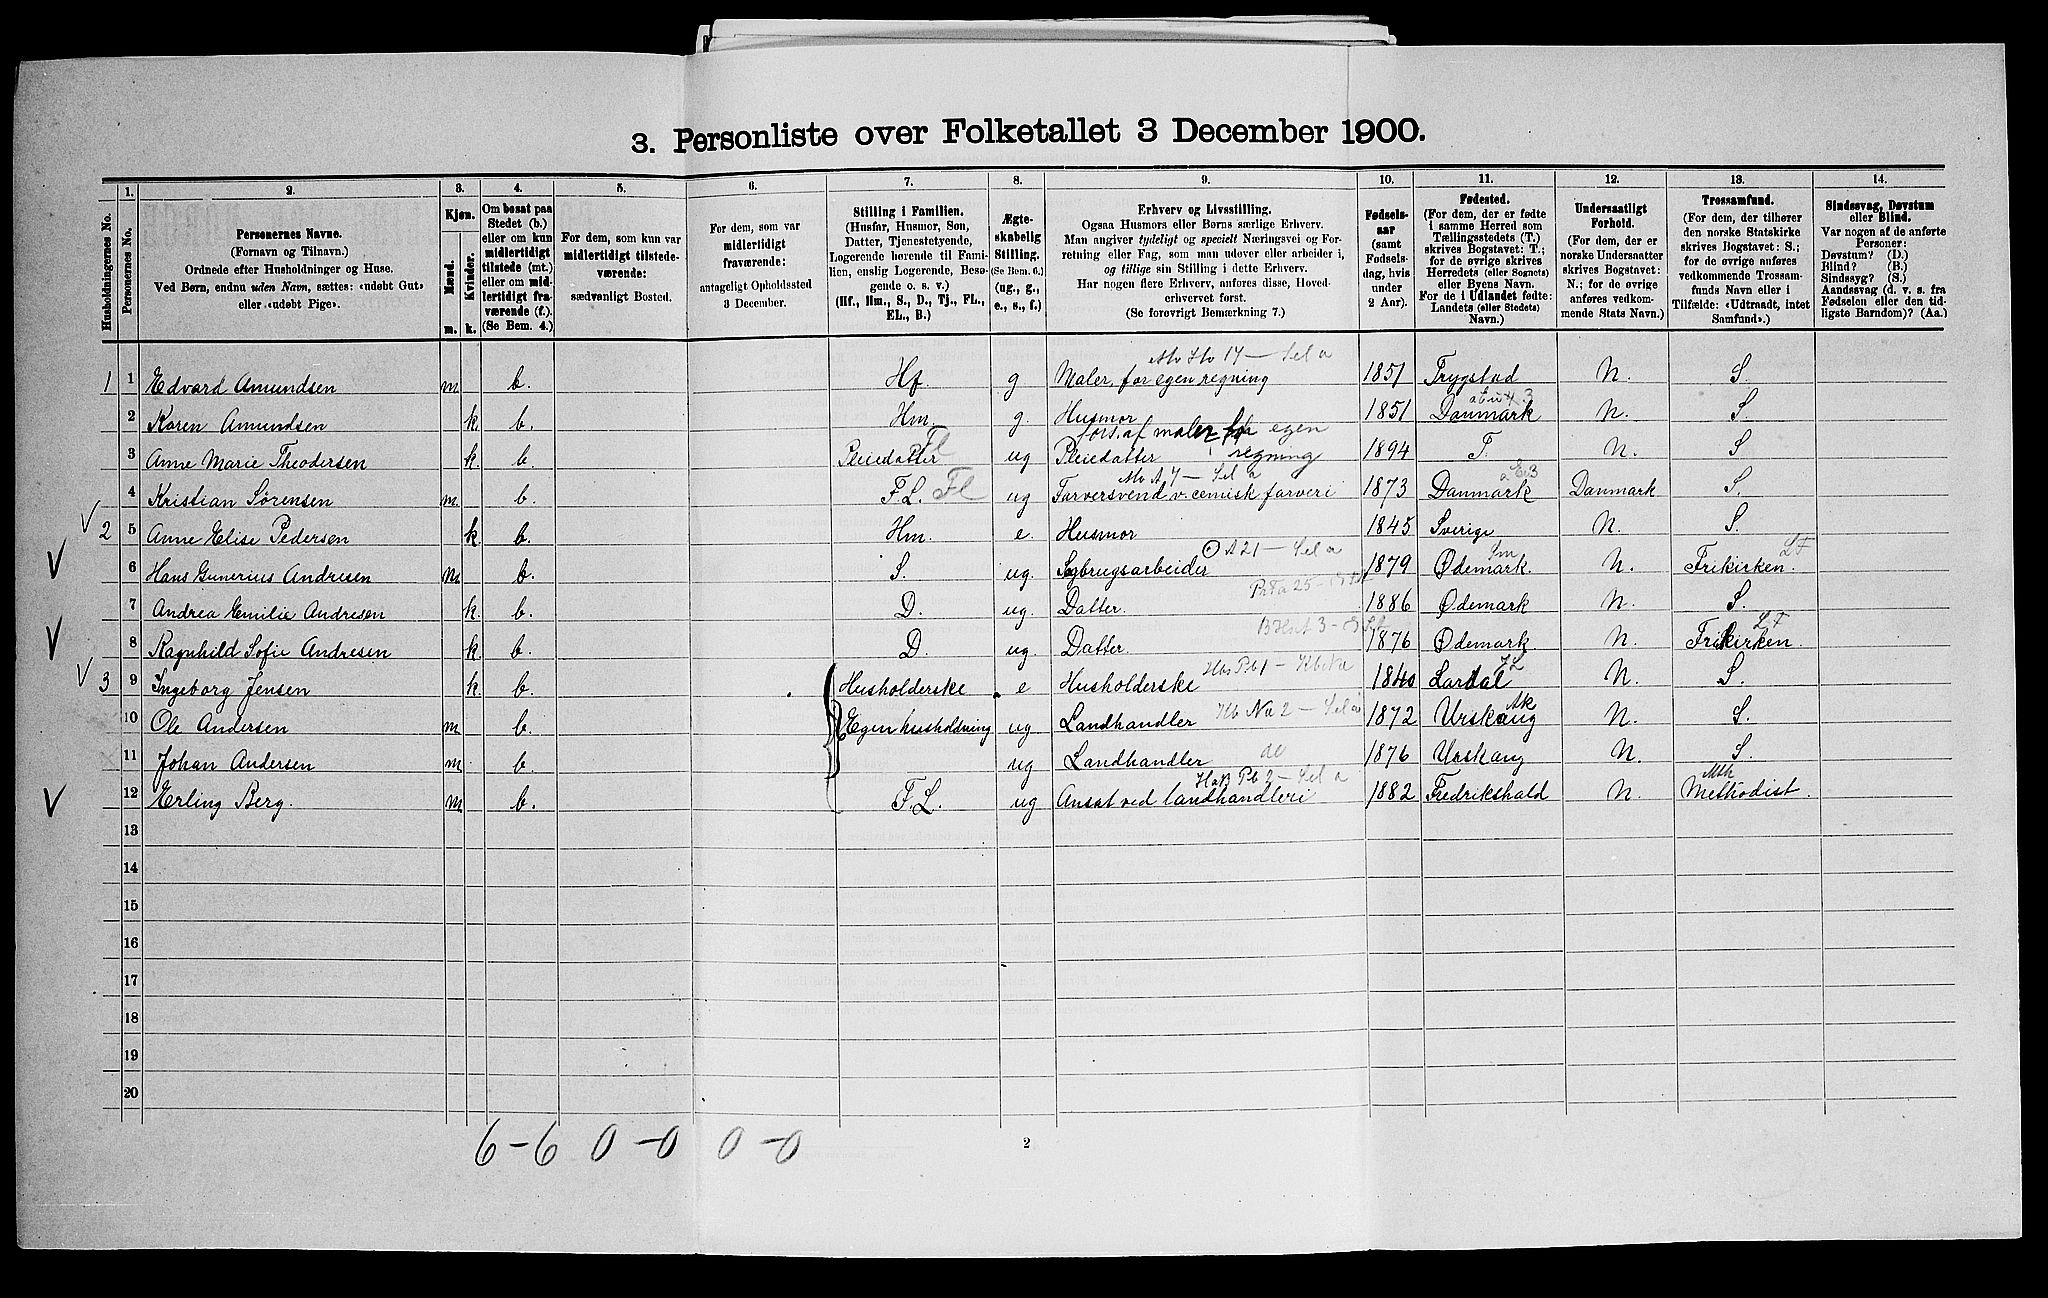 3. Personliste over Folketallet 3 December 1900.
Husholdningernes No.
1. Personernes No.
2. Personernes Navne. (Fornavn og Tilnavn.) Ordnede efter Husholdninger og Huse. Ved Børn, endnu uden Navn, sættes: «udøbt Gut» eller «udøbt Pige».
3. Kjøn. Mænd. m. Kvinder. k.
4. Om bosat paa Stedet (b.) eller om kun midlertidigt tilstede (mt.) eller om midlertidigt fraværende (f.). (Se Bem. 4.)
5. For dem, som kun var midlertidigt tilstedeværende: sædvanligt Bosted.
6. For dem, som var midlertidigt fraværende: antageligt Opholdssted 3 December.
7. Stilling i Familien. (Husfar, Husmor, Søn, Datter, Tjenestetyende, Logerende hørende til Familien, enslig Logerende, Besøgende o. s. v.) (Hf., Hm., S., D., Tj., FL., EL., B.)
8. Ægteskabelig Stilling. (Se Bem. 6.) (ug., g., e., s., f.)
9. Erhverv og Livsstilling. Ogsaa Husmors eller Børns særlige Erhverv. Man angiver tydeligt og specielt Næringsvei og Forretning eller Fag, som man udøver eller arbeider i, og tillige sin Stilling i dette Erhverv. Har nogen flere Erhverv, anføres disse, Hovederhvervet først. (Se forøvrigt Bemærkning 7.)
10. Fødselsaar (samt Fødselsdag, hvis under 2 Aar).
11. Fødested. (For dem, der er fødte i samme Herred som Tællingsstedets (T.) skrives Bogstavet: T.; for de øvrige skrives Herredets (eller Sognets) eller Byens Navn. For de i Udlandet fødte: Landets (eller Stedets) Navn.)
12. Undersaatligt Forhold. (For dem, der er norske Undersaatter skrives Bogstavet: N.; for de øvrige anføres vedkommende Stats Navn.)
13. Trossamfund. (For dem, der tilhører den norske Statskirke skrives Bogstavet: S.; for de øvrige anføres vedkommende Trossamfunds Navn eller i Tilfælde: «Udtraadt, intet Samfund».)
14. Sindssvag, Døvstum eller Blind. Var nogen af de anførte Personer: Døvstum? (D.) Blind? (B.) Sindssyg? (S.) Aandssvag (d. v. s. fra Fødselen eller den tidligste Barndom)? (Aa.)
1 1 Edvard Amundsen m. b. Hf. g Maler, for egen regning 1851 Trygstad N. S.
2 Karen Amundsen k. b. Hm. g. Husmor 1851 Danmark N. S.
3 Anne Marie Theodersen k. b. Pleiedatter Fl ug Pleiedatter fors. af maler for egen regning 1894 T. N. S
4 Kristian Sørensen m. b. F.L. Fl ug Farversvend v. cemisk farveri 1873 Danmark Danmark S.
2 5 Anne Elise Pedersen k. b. Hm. e. Husmor 1845 Sverige N. S.
6 Hans Gunerius Andresen m. b. S. ug. Sagbrugsarbeider 1879 Ødemark. N. Frikirken. LF
7 Andrea Emilie Andresen k. b. D. ug. Datter. 1886 Ødemark N. S.
8 Ragnhild Sofie Andresen k. b. D. ug. Datter. 1876 Ødemark N. Frikirken. LF
3 9 Ingeborg Jensen k. b. Husholderske e Husholderske 1840 Lardal JL N. S.
10 Ole Andersen m. b. Egen husholdning ug Landhandler 1872 Urskoug Ak N. S.
11 Johan Andersen m. b. ug Landhandler do 1876 Urskaug N. S.
12 Erling Berg. m. b. F.L. ug Ansat ved landhandleri 1882 Fredrikshald N. Methodist. Mth
13
14
15
16
17
18
19
20
6-6 0-0 0-0
2